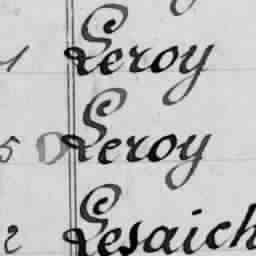 1 Leroy
5 D Leroy
2 Lesaich